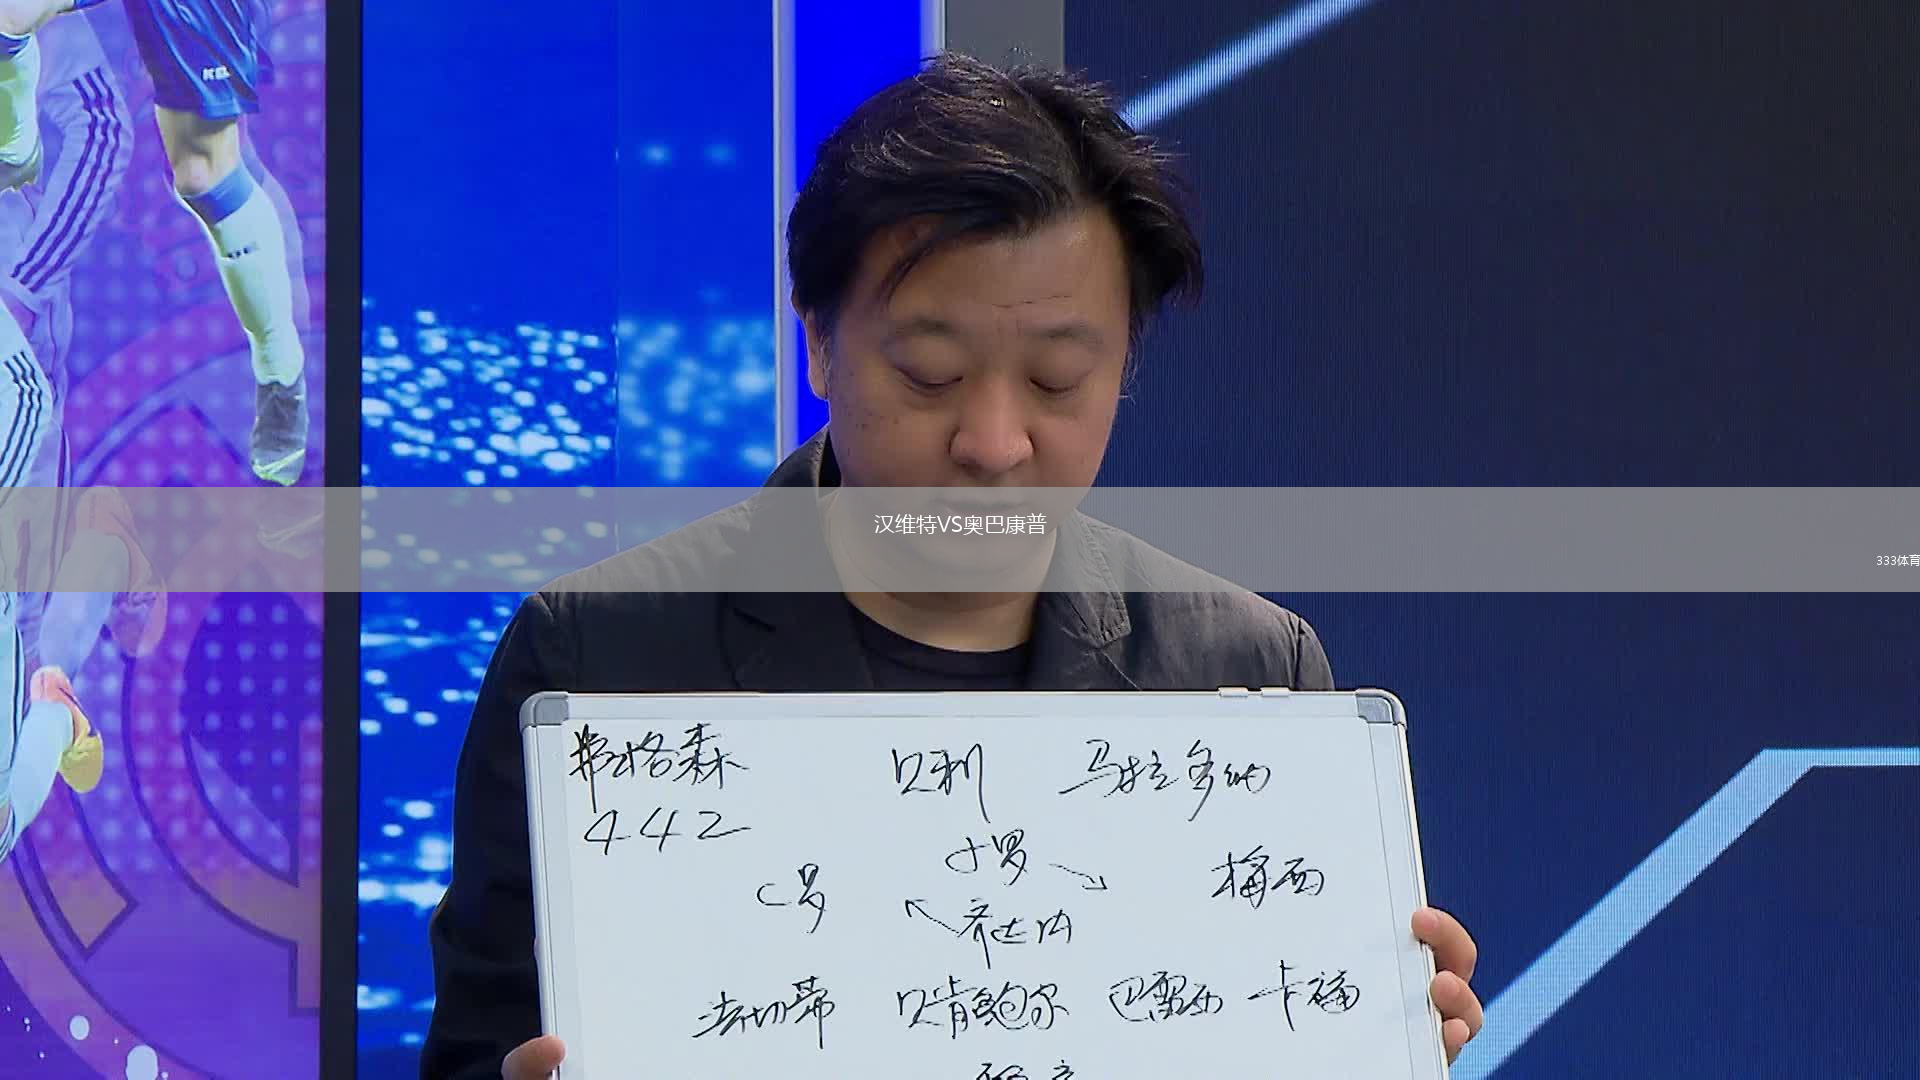 汉维特VS奥巴康普
333体育
弗格森 贝利 马拉多纳
442
小罗
C罗 梅西
齐达内
法切蒂 贝肯鲍尔 巴雷西 卡福